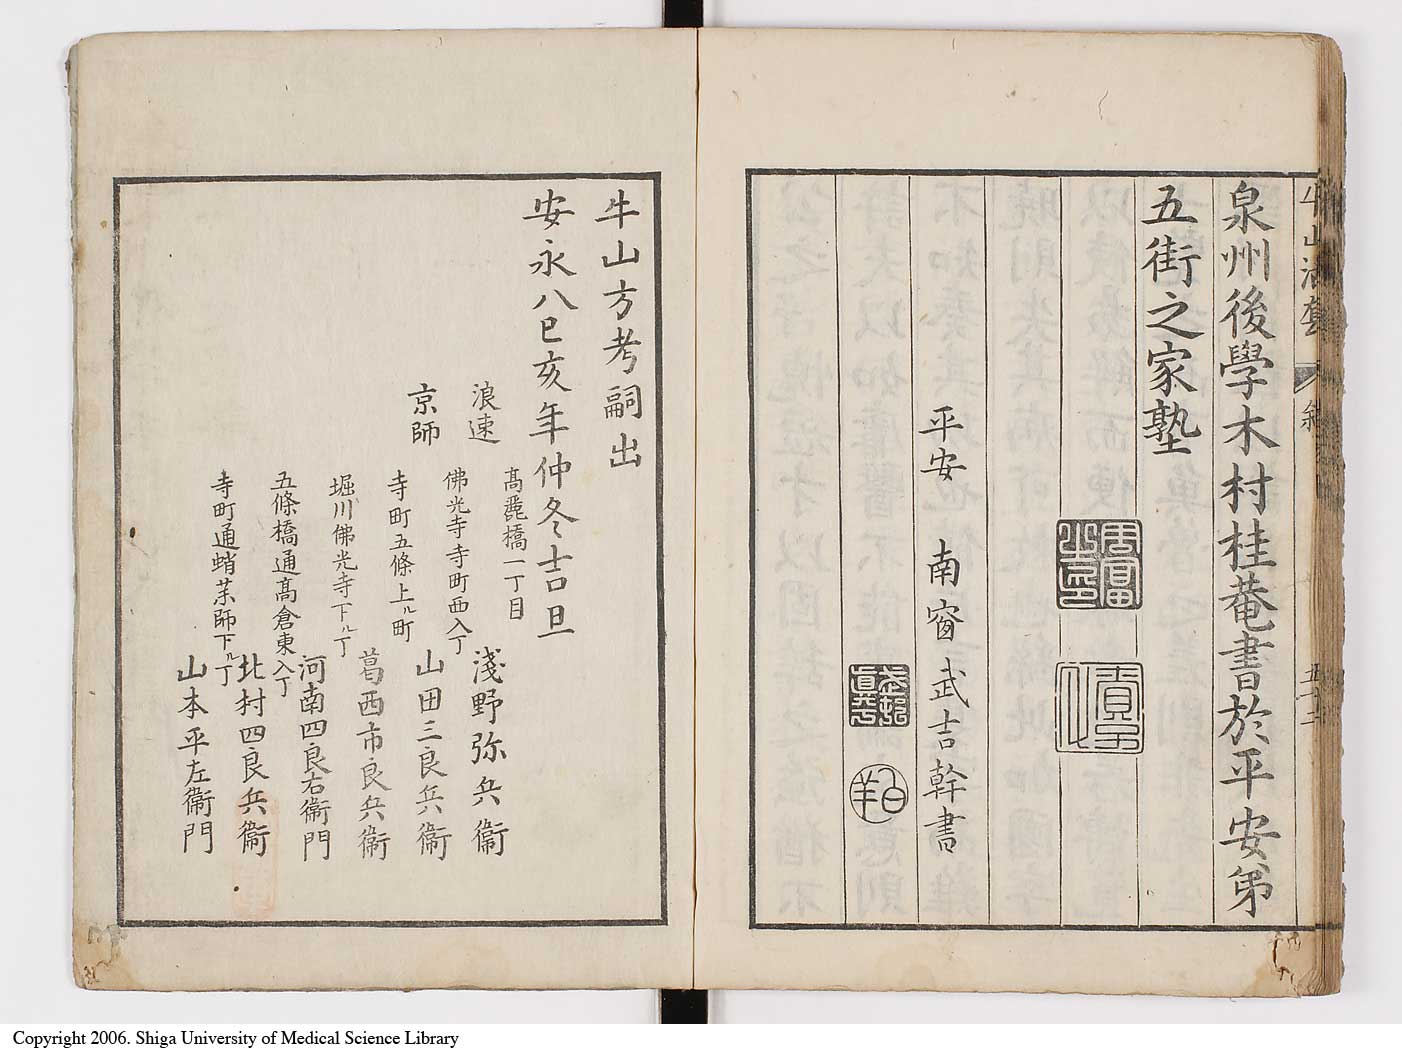 泉州後學木村桂菴書於平安第
五街之家塾
平安 南窗 武吉幹書
牛山方考嗣出
安永八己亥年仲冬吉旦
浪速 高麗橋一丁目 淺野弥兵衞
京師 佛光寺寺町西入丁 山田三良兵衞
寺町五條上ル町 葛西市良兵衞
堀川佛光寺下ル丁 河南四良右衞門
五條橋通高倉東入丁 北村四良兵衞
寺町通蛸薬師下ル丁 山本平左衞門
Copyright 2006. Shiga University of Medical Science Library